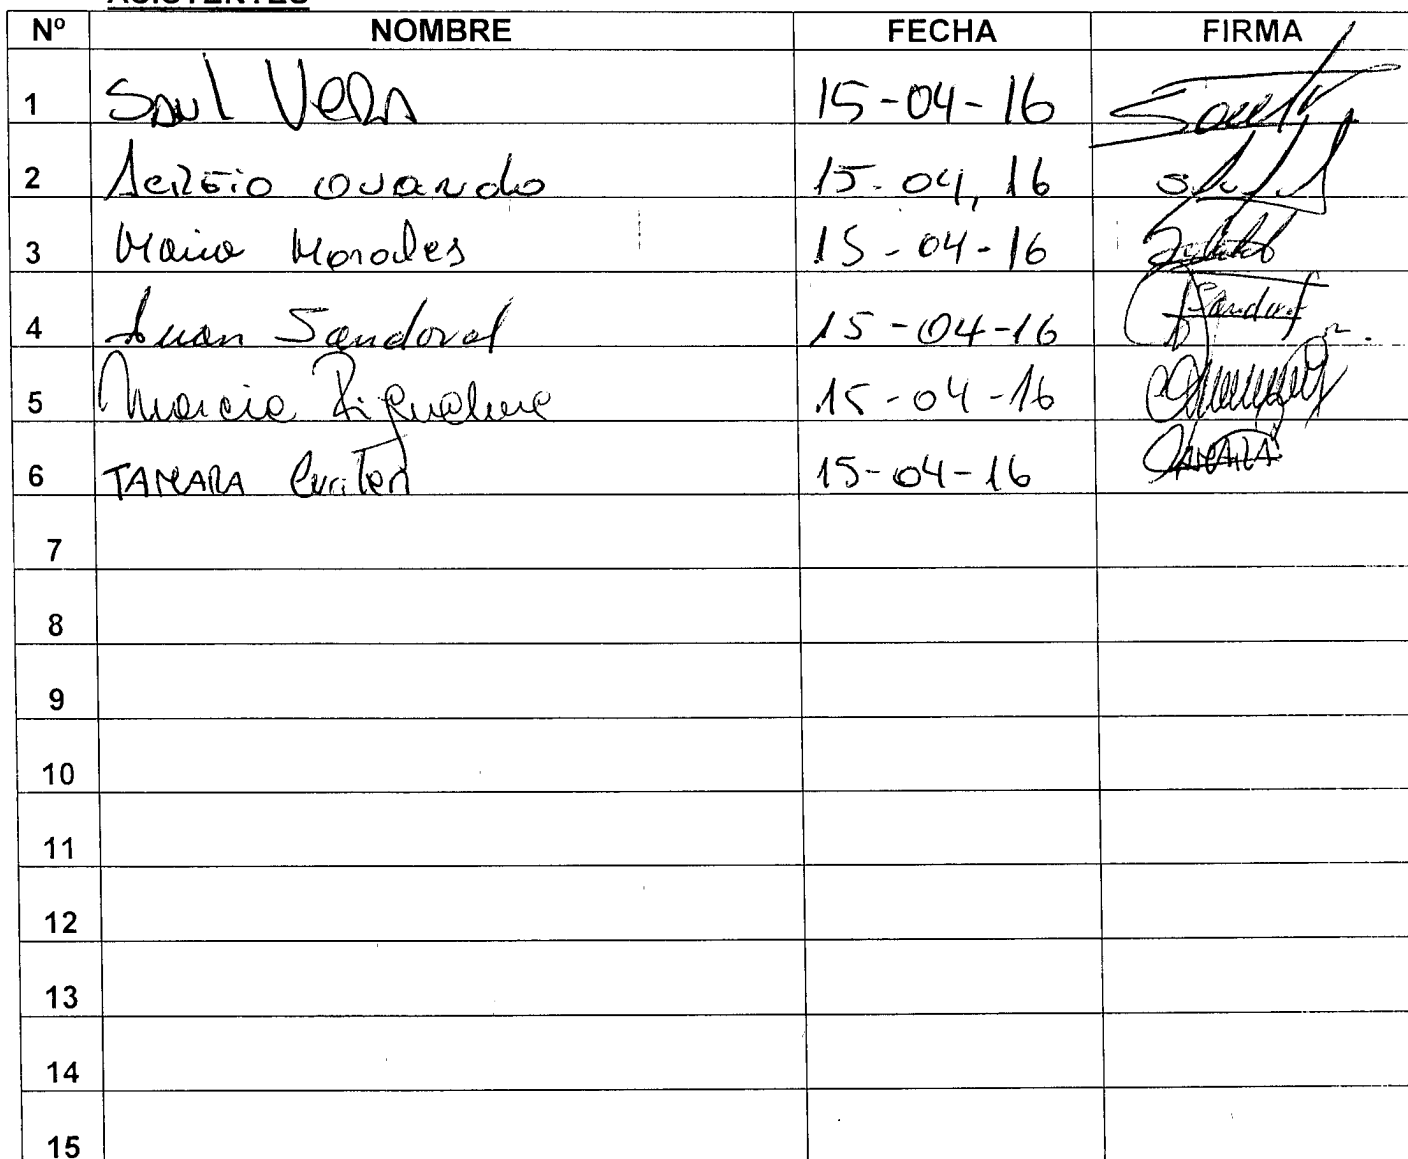 ASISTENTES
Nº NOMBRE FECHA FIRMA
1 Saul Vera 15-04-16 Saul
2 Sergio Ovando 15-04,16
3 Maria Morales 15-04-16
4 Juan Sandoval 15-04-16 Sandoval
5 Marcia 15-04-16
6 TAMARA 15-04-16 TAMARA
7
8
9
10
11
12
13
14
15